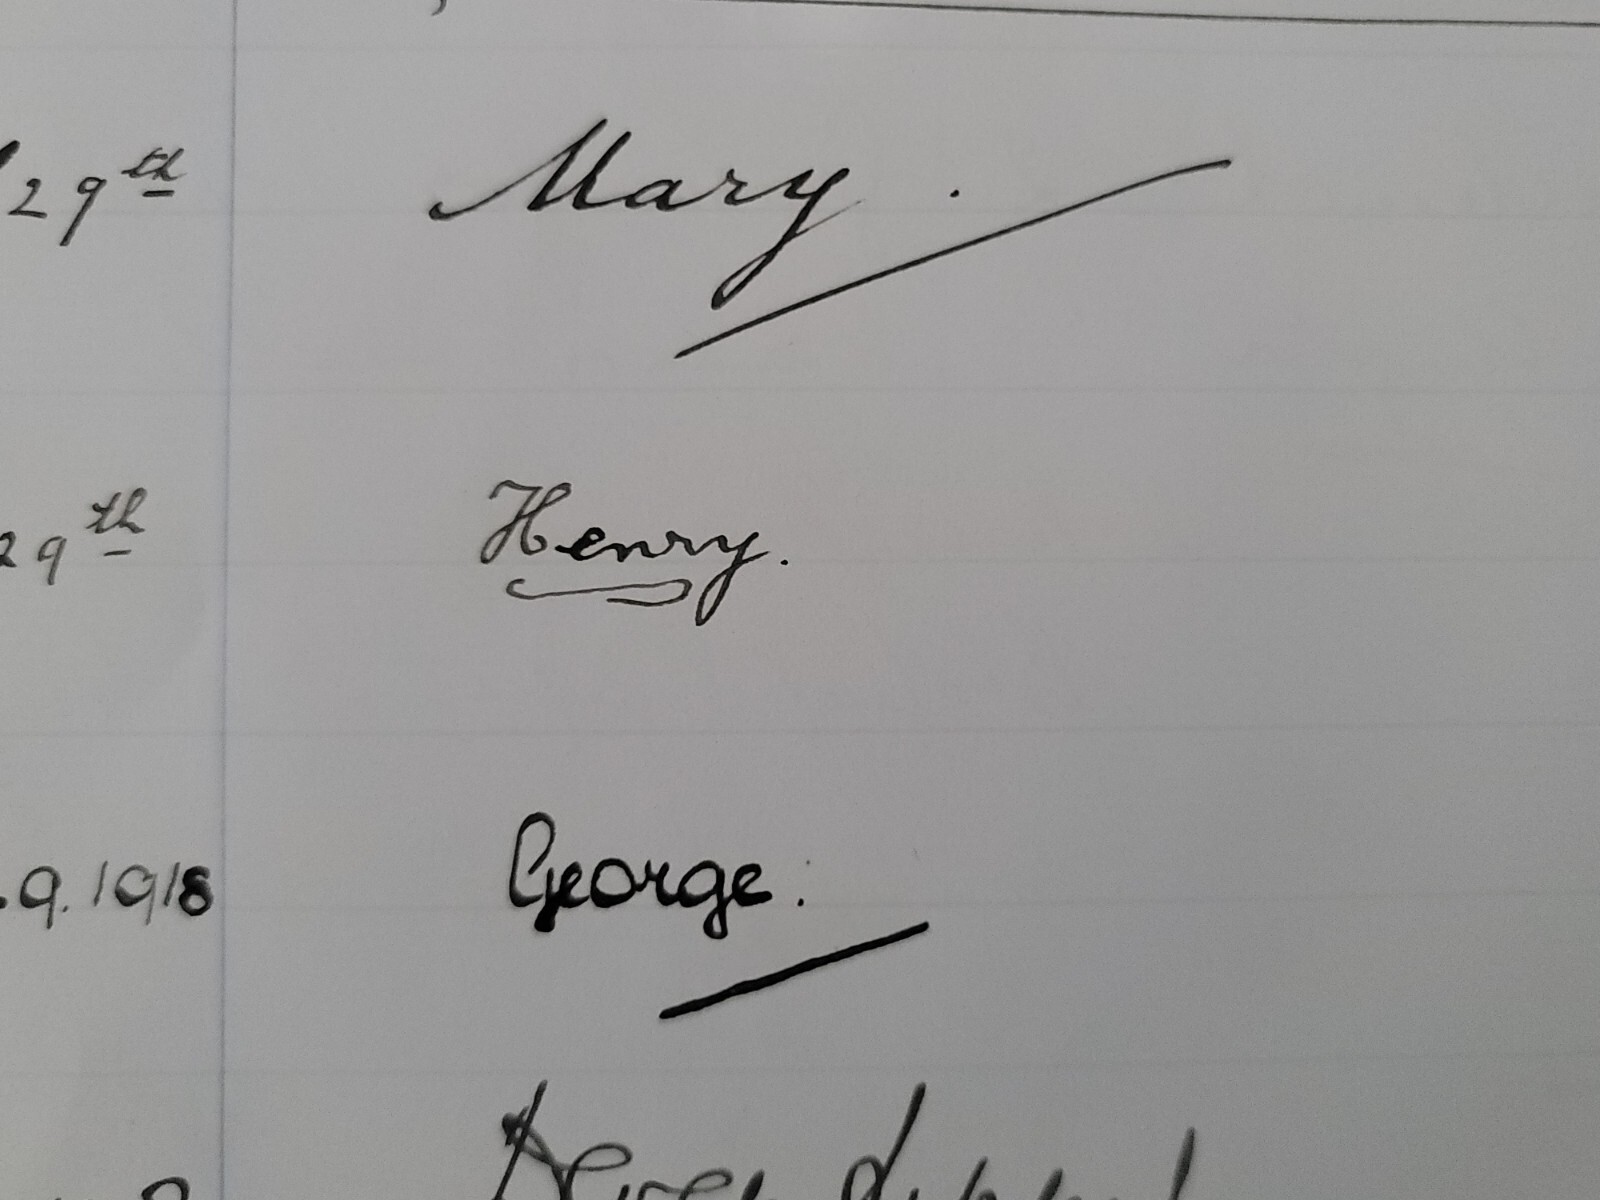 29th Mary.
29th Henry.
.9.1918 George.